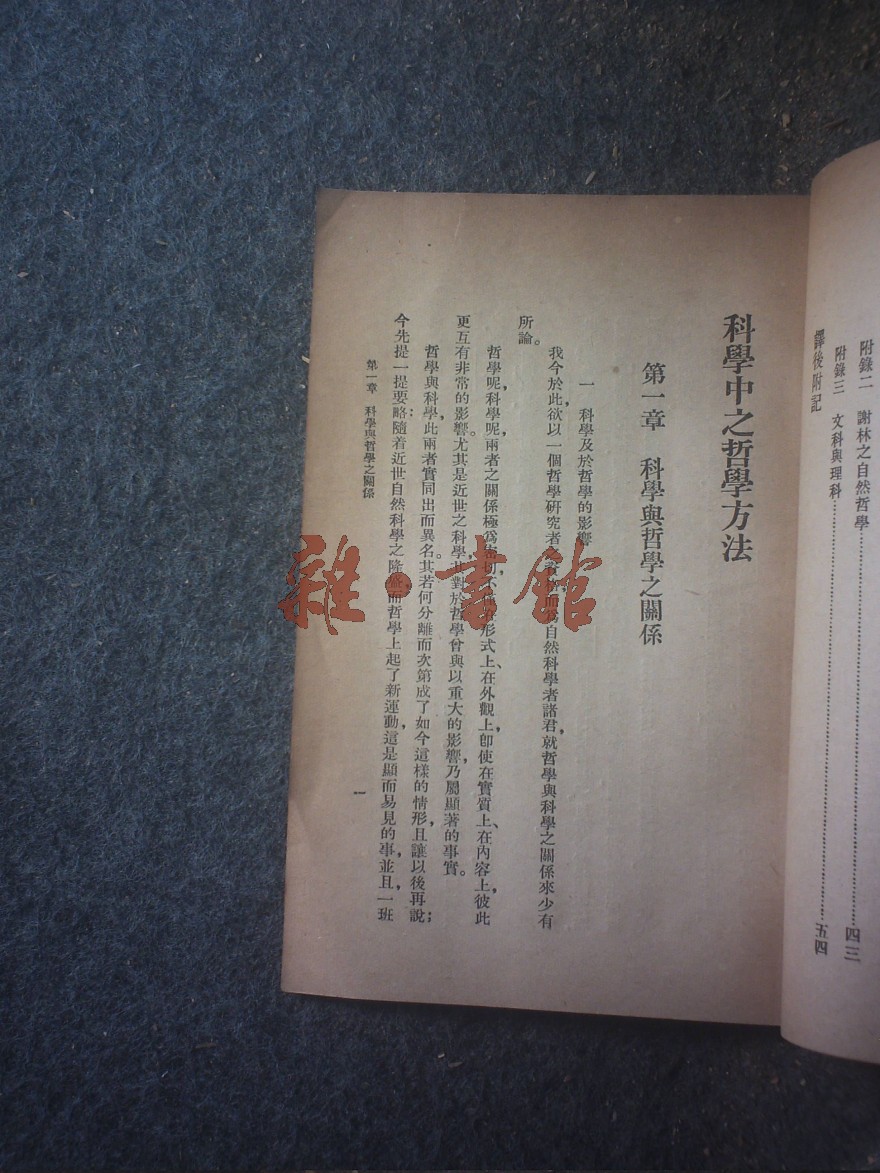 附錄二　謝林之自然哲學……四三
附錄三　文科與理科……
譯後附記……五四
科學中之哲學方法
第一章　科學與哲學之關係
一　科學及於哲學的影響
我今於此，欲以一個哲學研究者之資格而爲自然科學者諸君，就哲學與科學之關係來少有
所論。
哲學呢，科學呢，兩者之關係極爲密切，不　在形式上、在外觀上，卽使在實質上、在內容上，彼此
更互有非常的影響。尤其是近世之科學，其對於哲學曾與以重大的影響，乃屬顯著的事實。
哲學與科學，此兩者實同出而異名。其若何分離而次第成了如今這樣的情形，且讓以後再說；
今先提一提要略：隨着近世自然科學之隆盛，而哲學上起了新運動，這是顯而易見的事，並且，一班
第一章　科學與哲學之關係
一
雜·書館